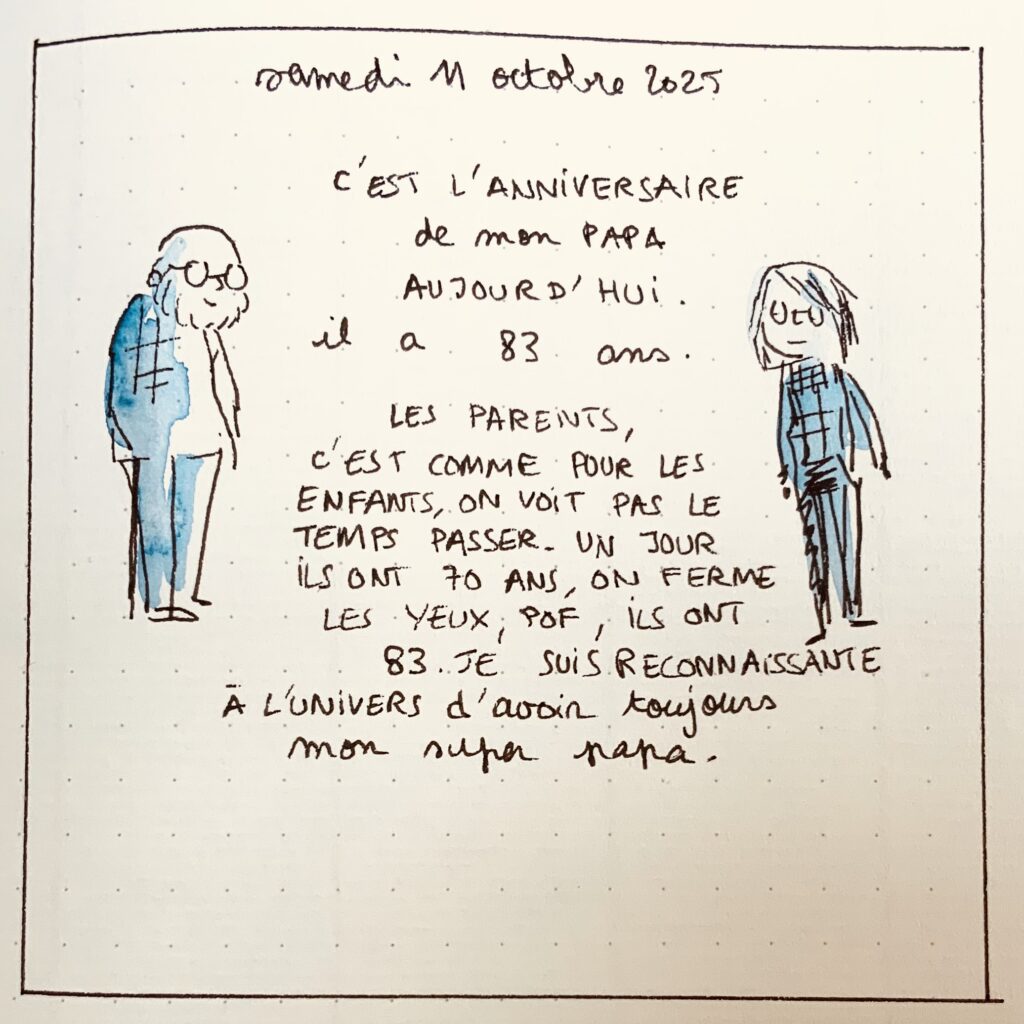 samedi 11 octobre 2025
C'EST L'ANNIVERSAIRE
de mon PAPA
AUJOURD'HUI.
il a 83 ans.
LES PARENTS,
C'EST COMME POUR LES
ENFANTS, ON VOIT PAS LE
TEMPS PASSER. UN JOUR
ILS ONT 70 ANS, ON FERME
LES YEUX, POF, ILS ONT
83. JE SUIS RECONNAISSANTE
À L'UNIVERS d'avoir toujours
mon super papa.